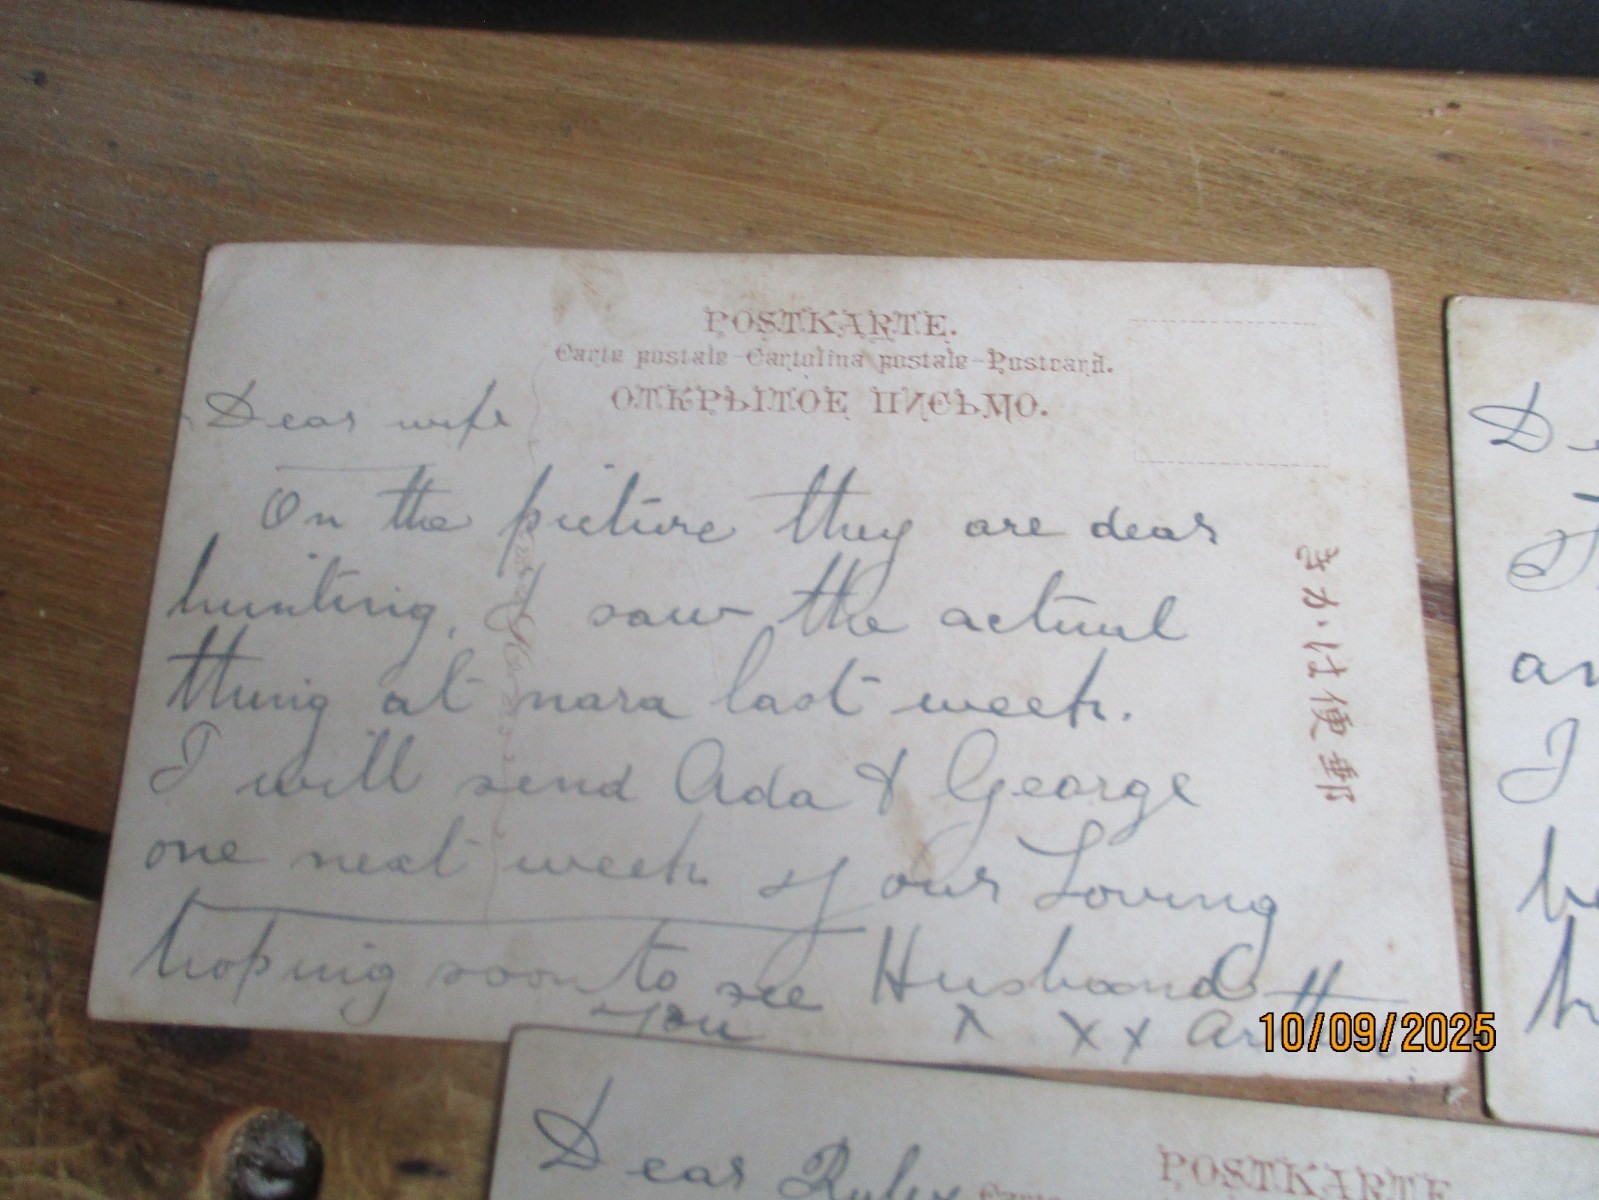 POSTKARTE.
Carte postale-Cartolina postale-Postcard.
ОТКРЫТОЕ ПИСЬМО.
きかは便郵
Dear wife
On the picture they are dear
hunting, I saw the actual
thing at nara last week.
I will send Ada & George
one next week
of your Loving
hoping soon to see
you
Husband
x xx
10/09/2025
an
I
Dear
POSTKARTE